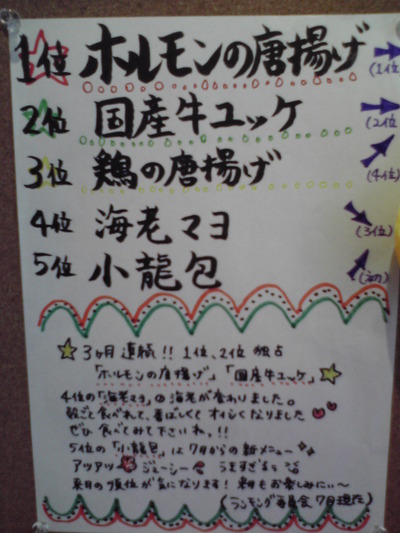 1位 ホルモンの唐揚げ (1位)
2位 国産牛ユッケ (2位)
3位 鶏の唐揚げ (4位)
4位 海老マヨ (3位)
5位 小龍包
3ヶ月連続!! 1位、2位 独占
「ホルモンの唐揚げ」「国産牛ユッケ」
4位の「海老マヨ」の海老が変わりました。
殻ごと食べれて、香ばしくてオイシくなりました
ぜひ食べてみて下さいね。!!
5位の「小龍包」は7月からの新メニュー
アツアツ ジューシー うますぎる
来月の順位が気になります!来月もお楽しみにぃ〜
(ランキング委員会 7月現在)